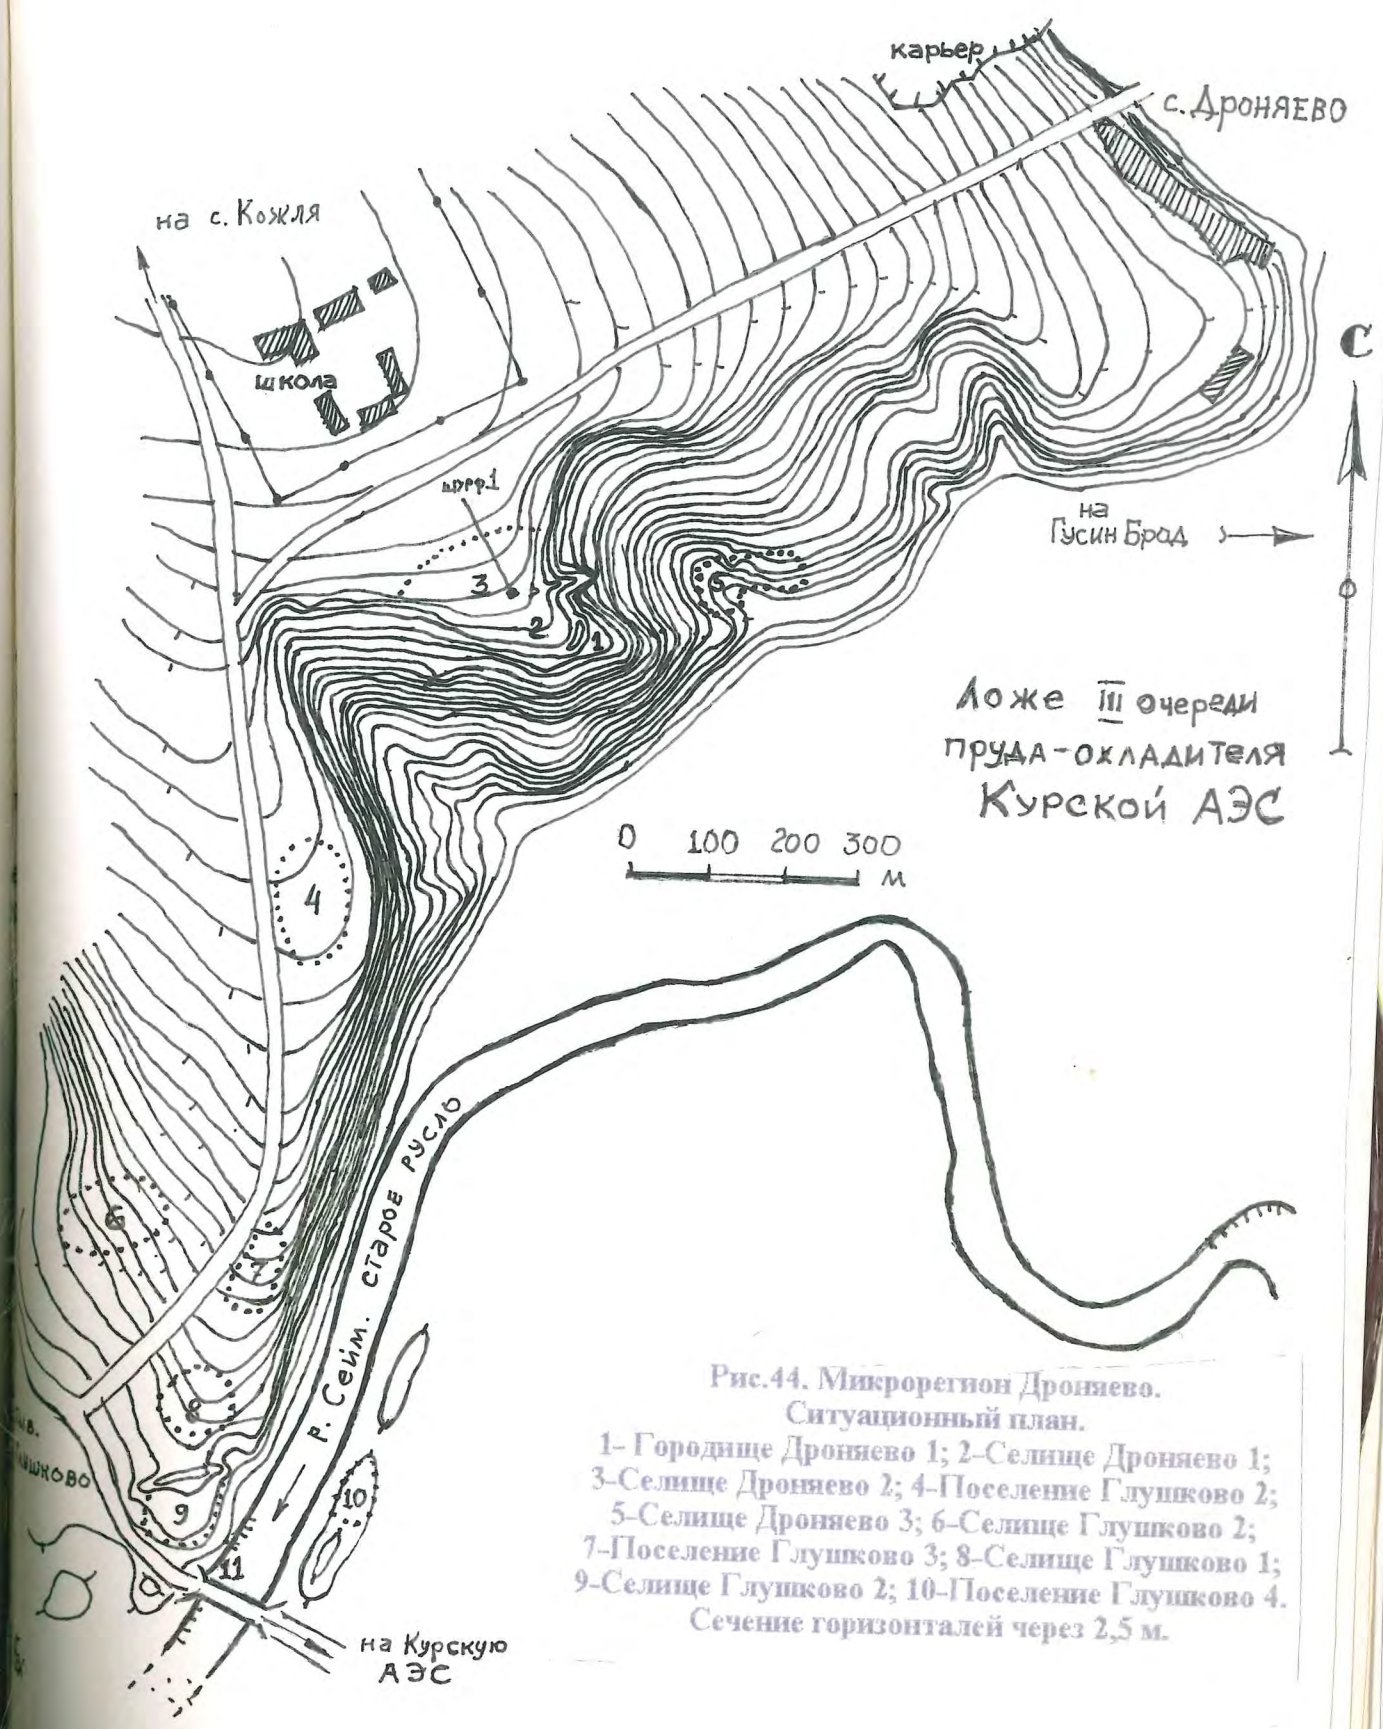 карьер
с. Дроняево
на с. Кожля
школа
С
шурф.1
на
Гусин Брод
3
2
1
5
Ложе III очереди
пруда-охладителя
Курской АЭС
0 100 200 300
м
4
6
7
8
9
10
11
р. Сейм. старое русль
на Курскую
АЭС
Рис.44. Микрорегион Дроняево.
Ситуационный план.
1- Городище Дроняево 1; 2-Селище Дроняево 1;
3-Селище Дроняево 2; 4-Поселение Глушково 2;
5-Селище Дроняево 3; 6-Селище Глушково 2;
7-Поселение Глушково 3; 8-Селище Глушково 1;
9-Селище Глушково 2; 10-Поселение Глушково 4.
Сечение горизонталей через 2,5 м.